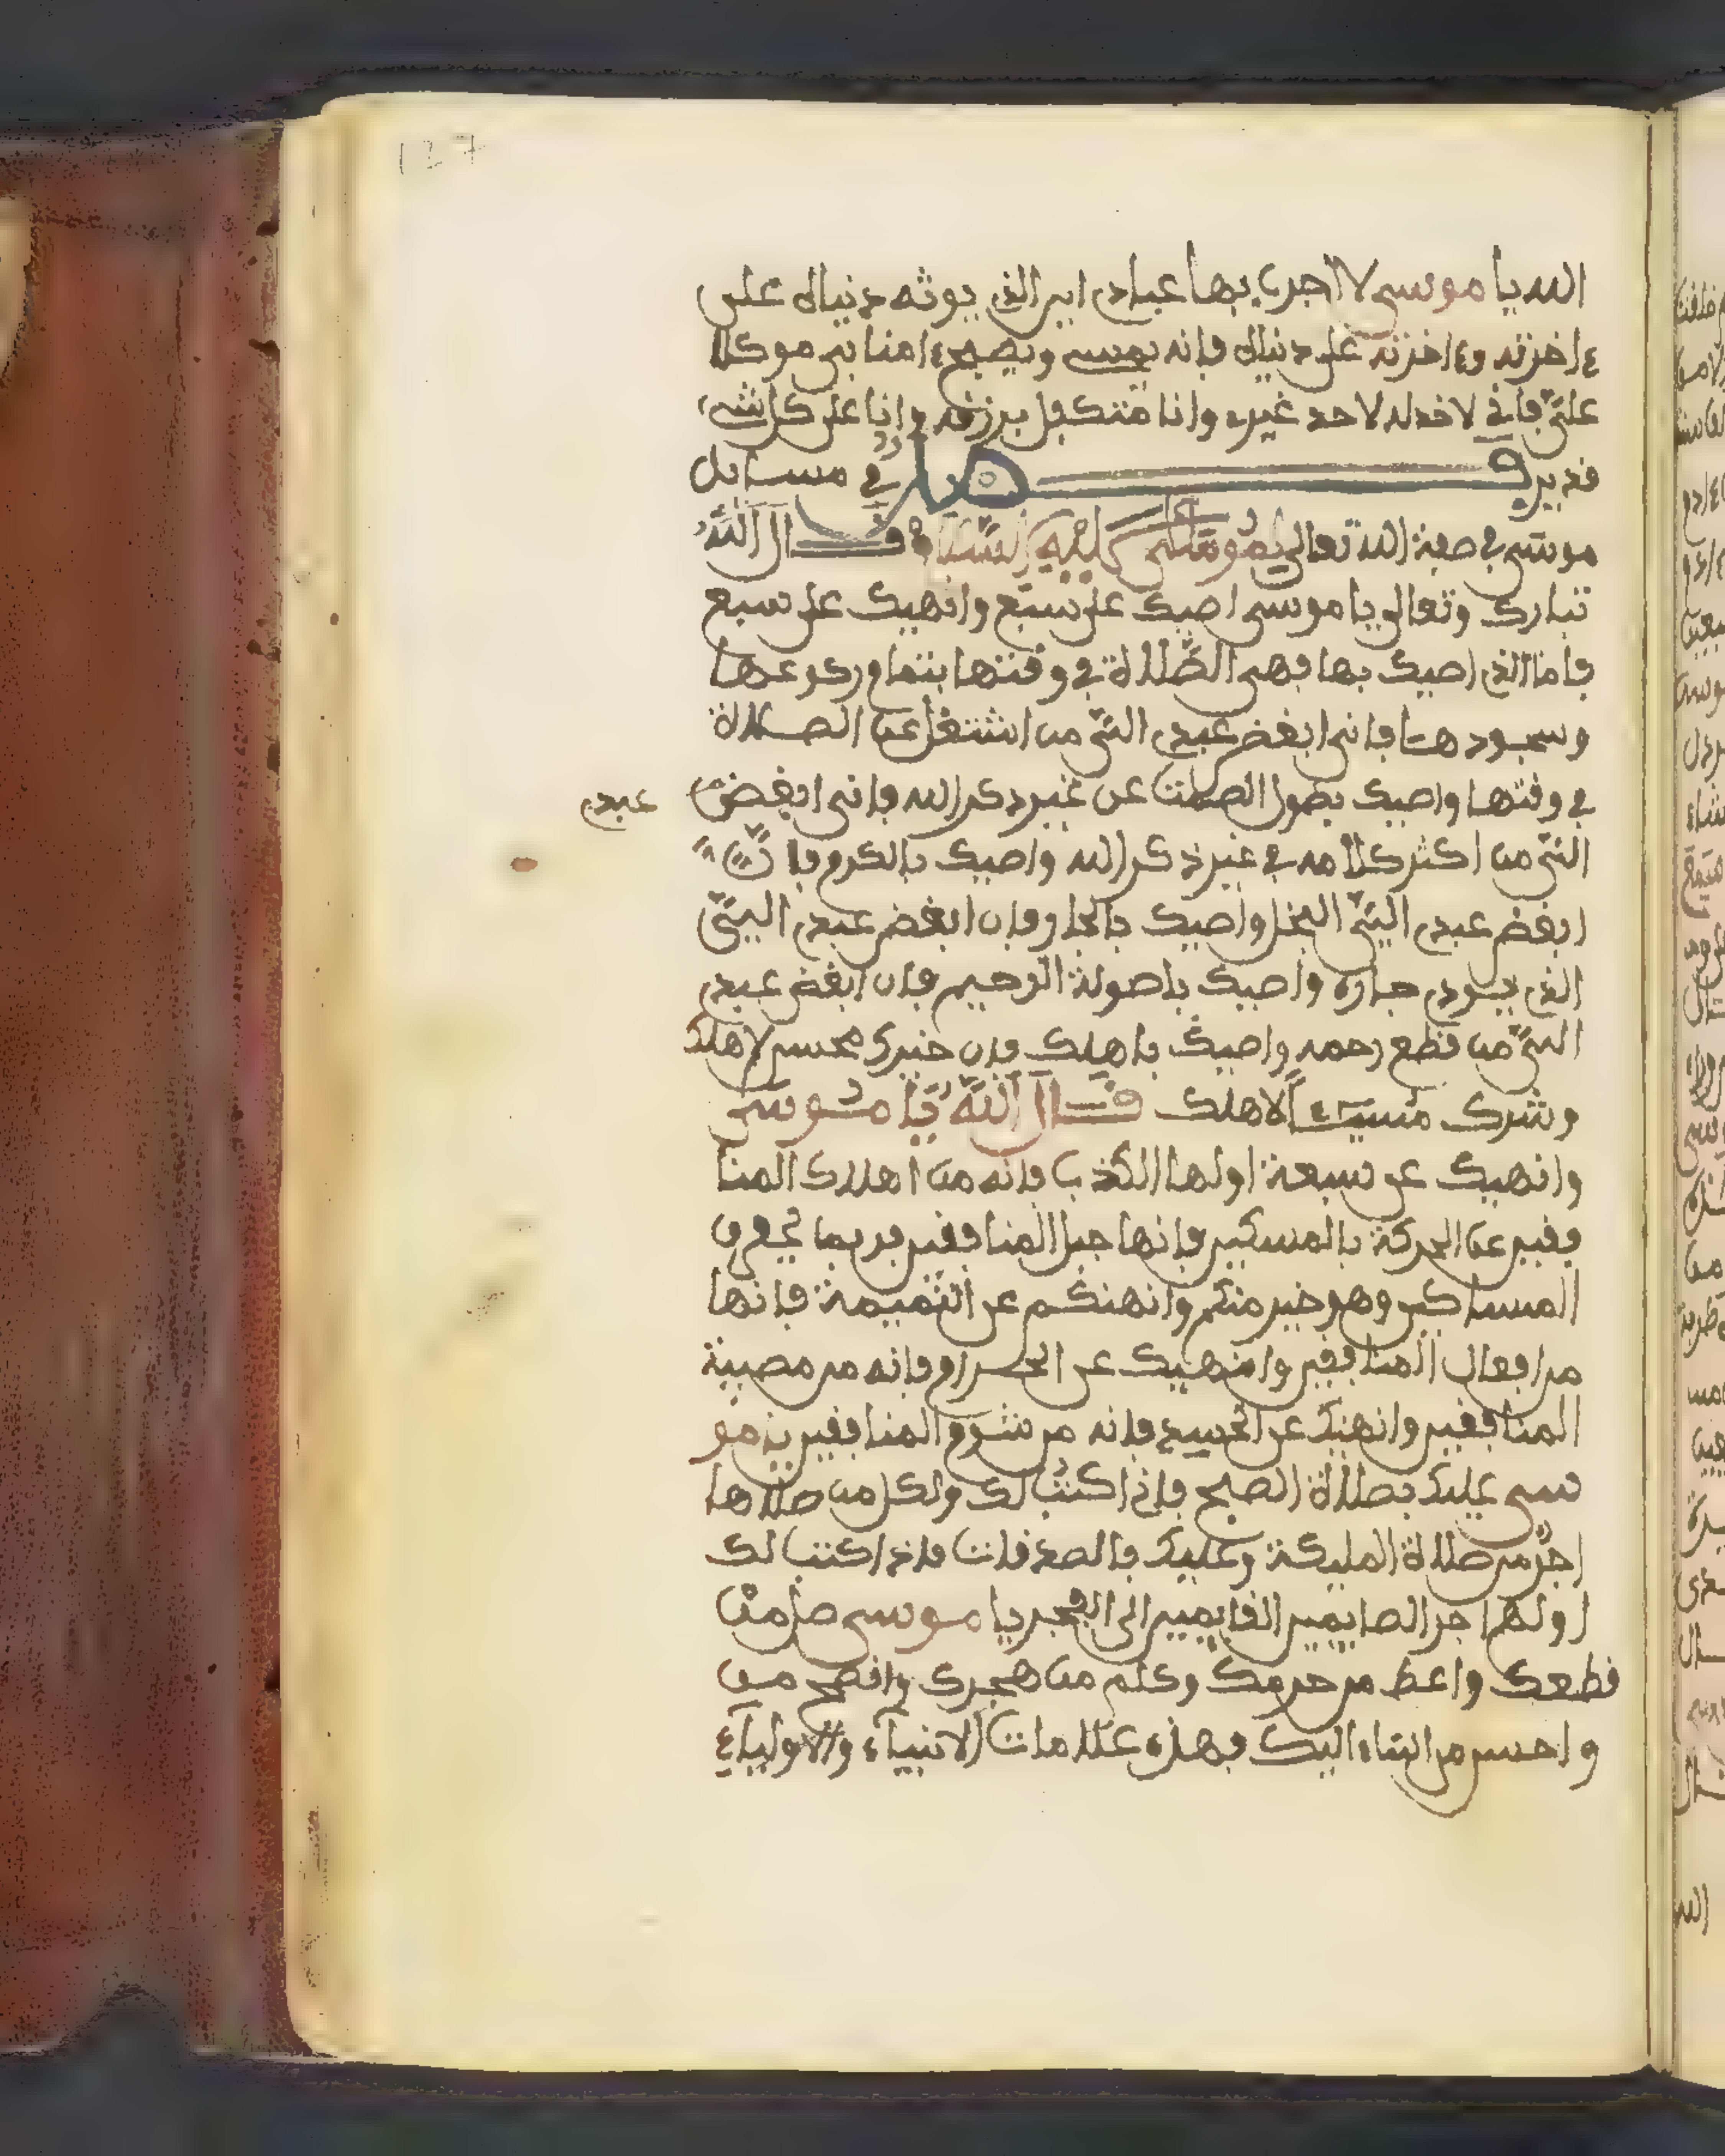 127
الله يا موسى لا اجرب بها عبادي اير الذي يوثه دنياه على
ءاخرته وءاخرته على دنياه فانه يمسى ويصبح ءامنا بي موكلا
علي فاني لا خد له لاحد غيري وانا متكفل برزقه وانا على كل شيء
قدير فصل في مسايل
موسى في صفة الله تعالى لموسى عليه السلام قال الله
تبارك وتعالى يا موسى اصيك على سبع وانهيك على سبع
فاما الذي اصيك بها فهي الصلاة في وقتها بتمام ركوعها
وسجودها فاني ابغض عبدي التي من اشتغل عن الصلاة
في وقتها واصيك بطول الصمت عن غير ذكر الله فاني ابغض عبدي
التي من اكثر كلامه في غير ذكر الله واصيك بالكرم فان
ابغض عبدي التي البخل واصيك بالجار فان ابغض عبدي التي
الذي يوذي جاره واصيك باصولة الرحيم فان ابغض عبدي
التي من قطع رحمه واصيك باهلك فان خيرك محسن لاهلك
وشرك مسيءا لاهلك قال الله يا موسى
وانهيك عن سبعة اولها الكذب فانه من اهلاك المنا
فقير عن الحركة بالمسكين فانها جبل المنافقير فربما يحرق
المساكين وهو خير منكم وانهنكم عن النميمة فانها
من افعال المنافقير وانهيك عن الحرام فانه من مصيبة
المنافقير وانهيك عن الحسد فانه من شوم المنافقير يا مو
سى عليك بصلاة الصبح فاني اكتب لك ولكل من صلاها
اجر من صلاة المليكة وعليك بالصدقات فاني اكتب لك
اولها اجر الصايمير القايمير الى الفجر يا موسى صل من
قطعك واعط من حرمك وكلم من هجرك وانصح من
واحسن من اساء اليك فهذه علامات الانبياء والاولياء